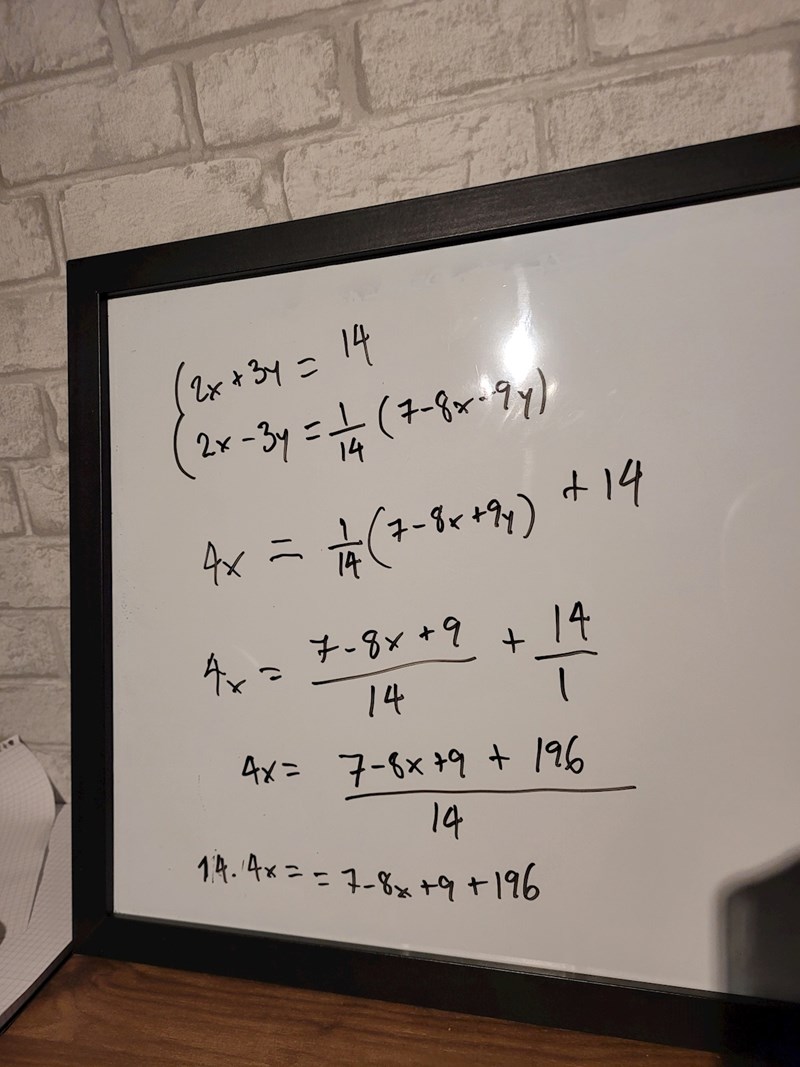 2x + 3y = 14
2x - 3y = 1/14 (7 - 8x - 9y)
4x = 1/14 (7 - 8x + 9y) + 14
4x = 7 - 8x + 9 / 14 + 14 / 1
4x = 7 - 8x + 9 + 196 / 14
14 . 4x = = 7 - 8x + 9 + 196